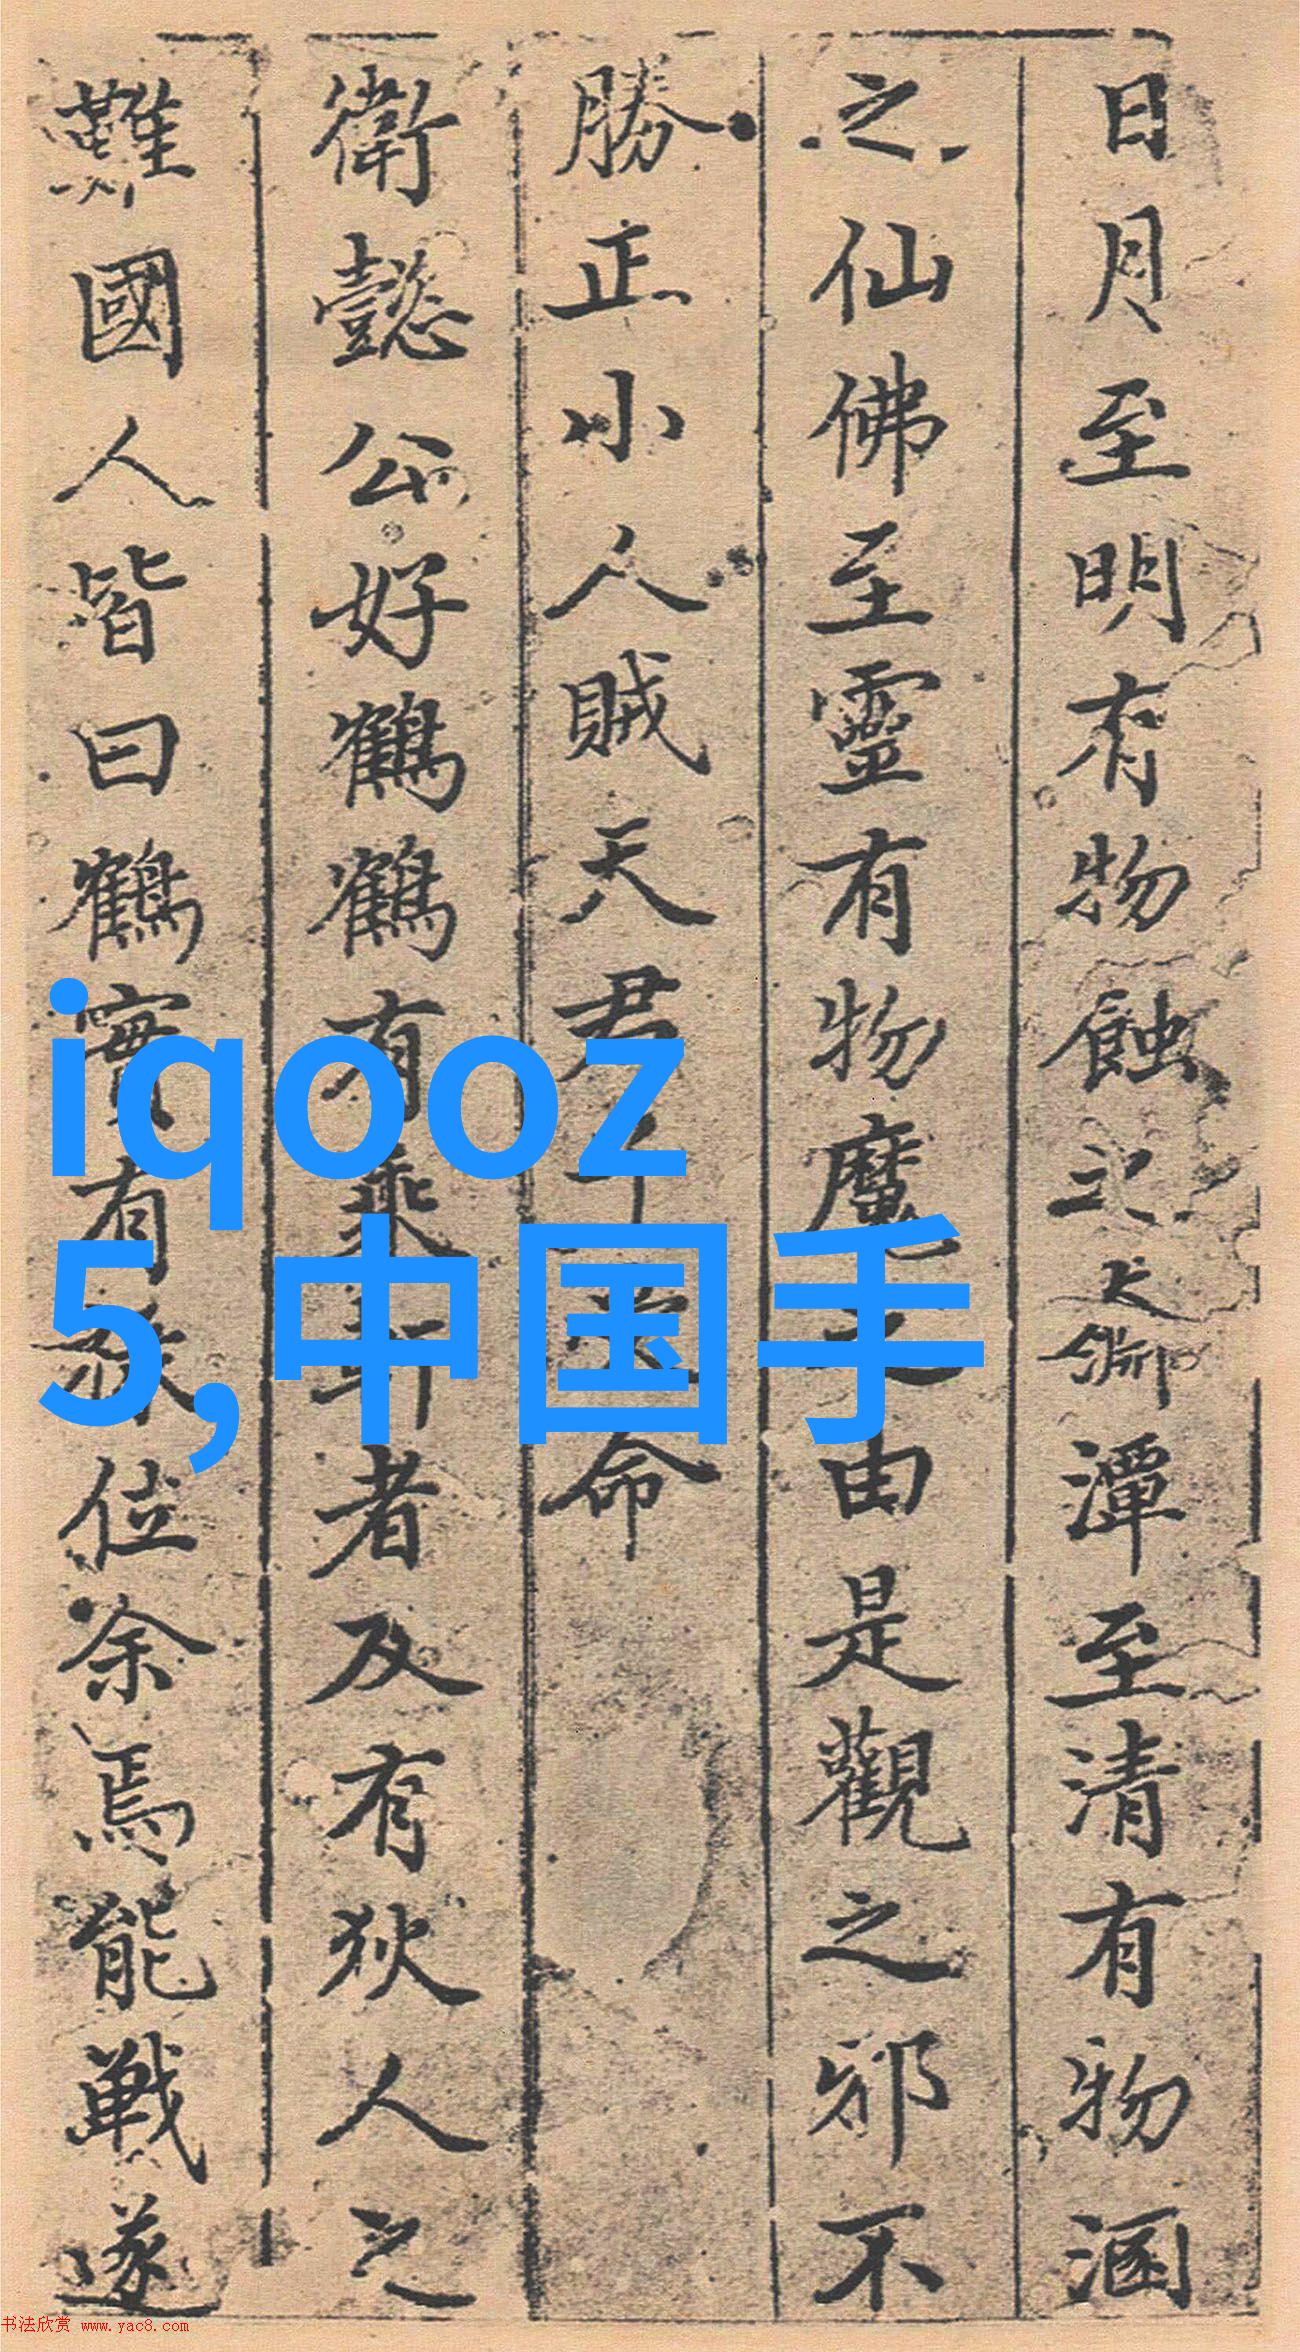 日月至明有物蝕之大師潭至清有物涵
之仙佛至靈有物魔之由是觀之邪不
勝正小人賊天君命
衛懿公好鶴鶴有乘軒者及有狄人之
難國人皆曰鶴實有祿位余焉能戰遂
iqooz
5,中国手
书法欣赏 www.yac8.com